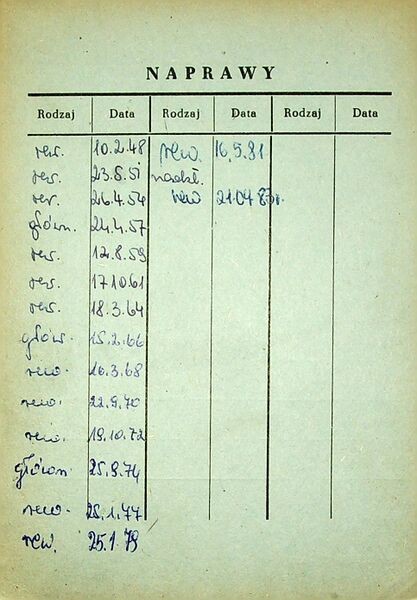 NAPRAWY
Rodzaj Data Rodzaj Data Rodzaj Data
rew. 10.2.48 rew. 16.5.81
rew. 23.8.51 nadzł.
rew. 26.4.54 rew 21.04.83r.
główn. 24.4.57
rew. 12.8.59
rew. 17.10.61
rew. 18.3.64
główn. 15.2.66
rew. 16.3.68
rew. 22.9.70
rew. 19.10.72
główn 25.9.74
rew. 25.1.77
rew. 25.1.79